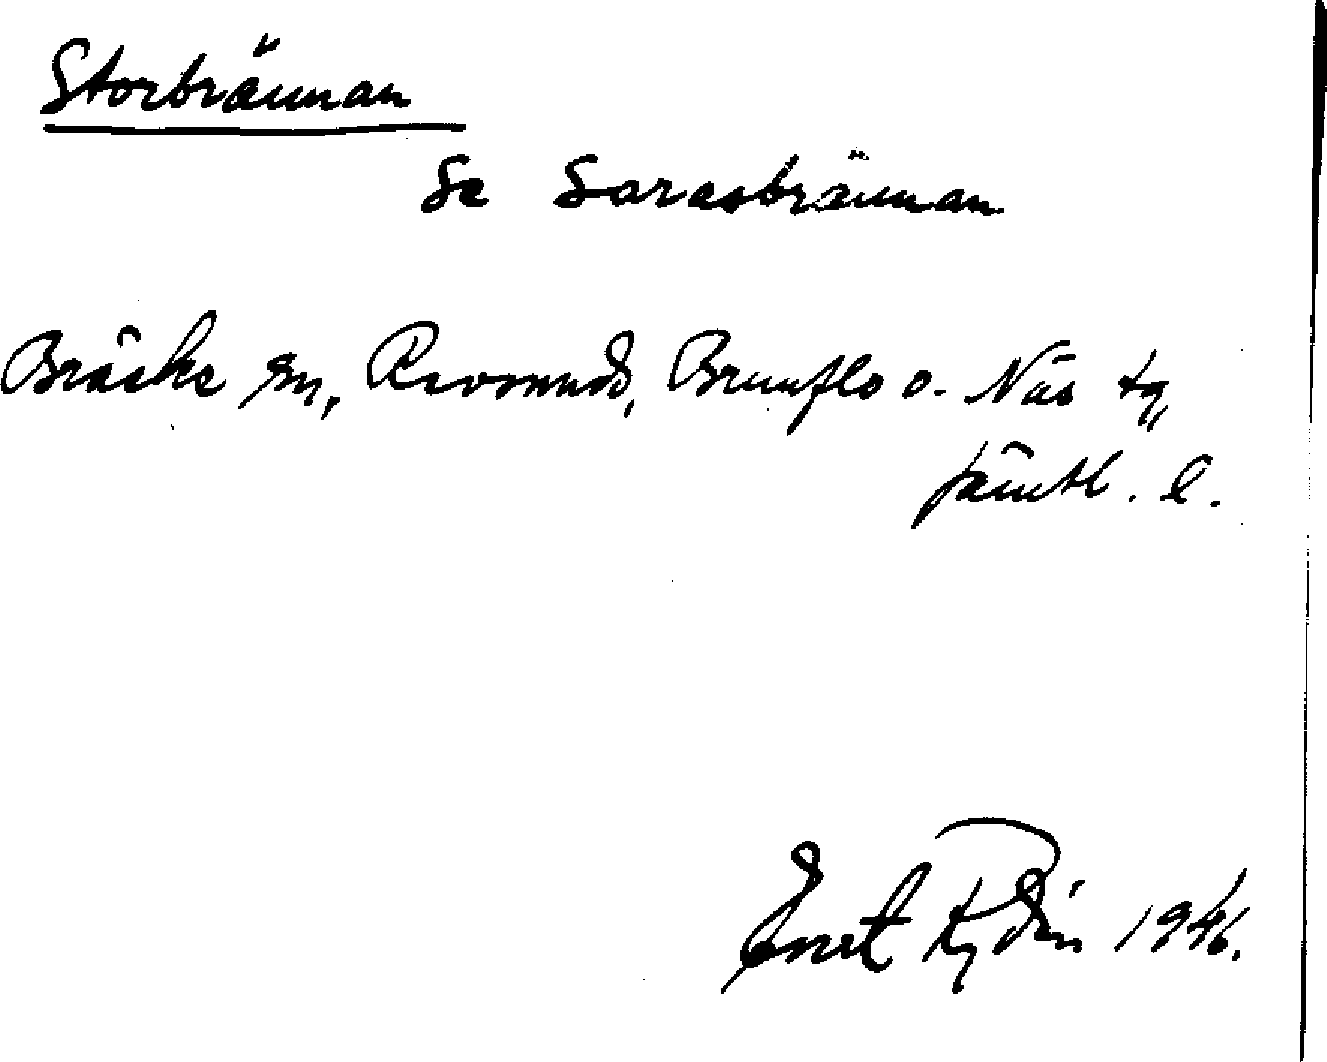 Storbrännan
Se Saresbrännan
Bräcke sn, Revsunds, Brunflo o. Näs tg
Jämtl. l.
Ernst Rydin 1946.